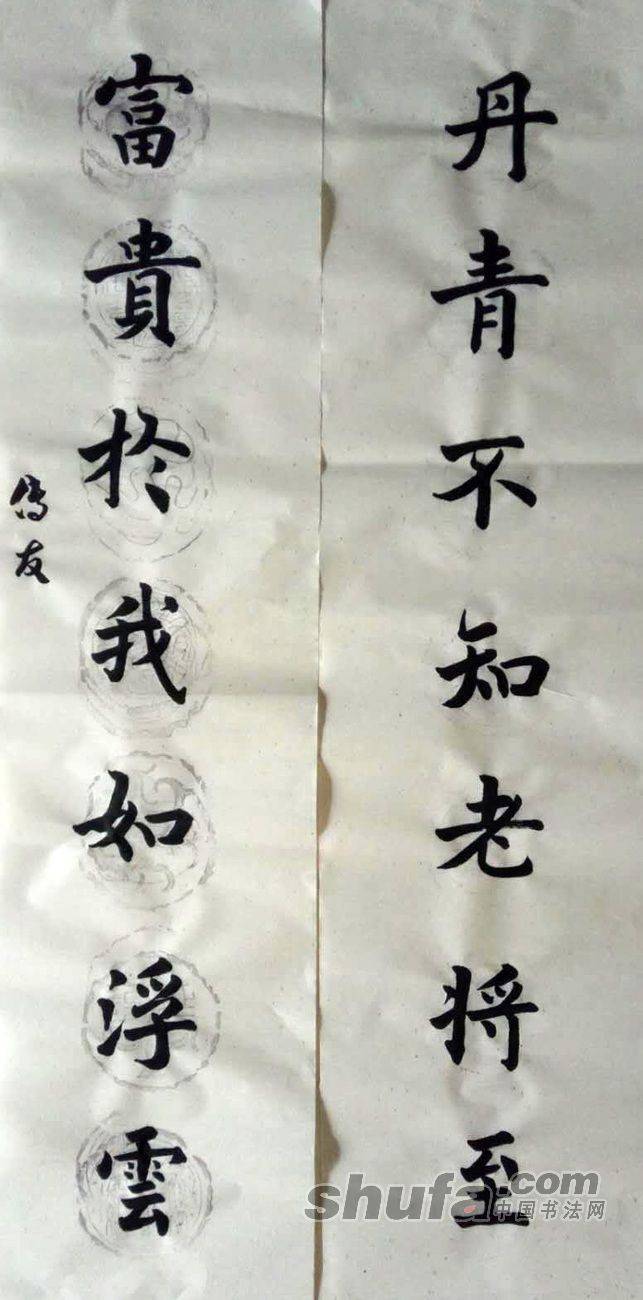 丹青不知老将至
富貴於我如浮雲
傳友
shufa.com
中国书法网